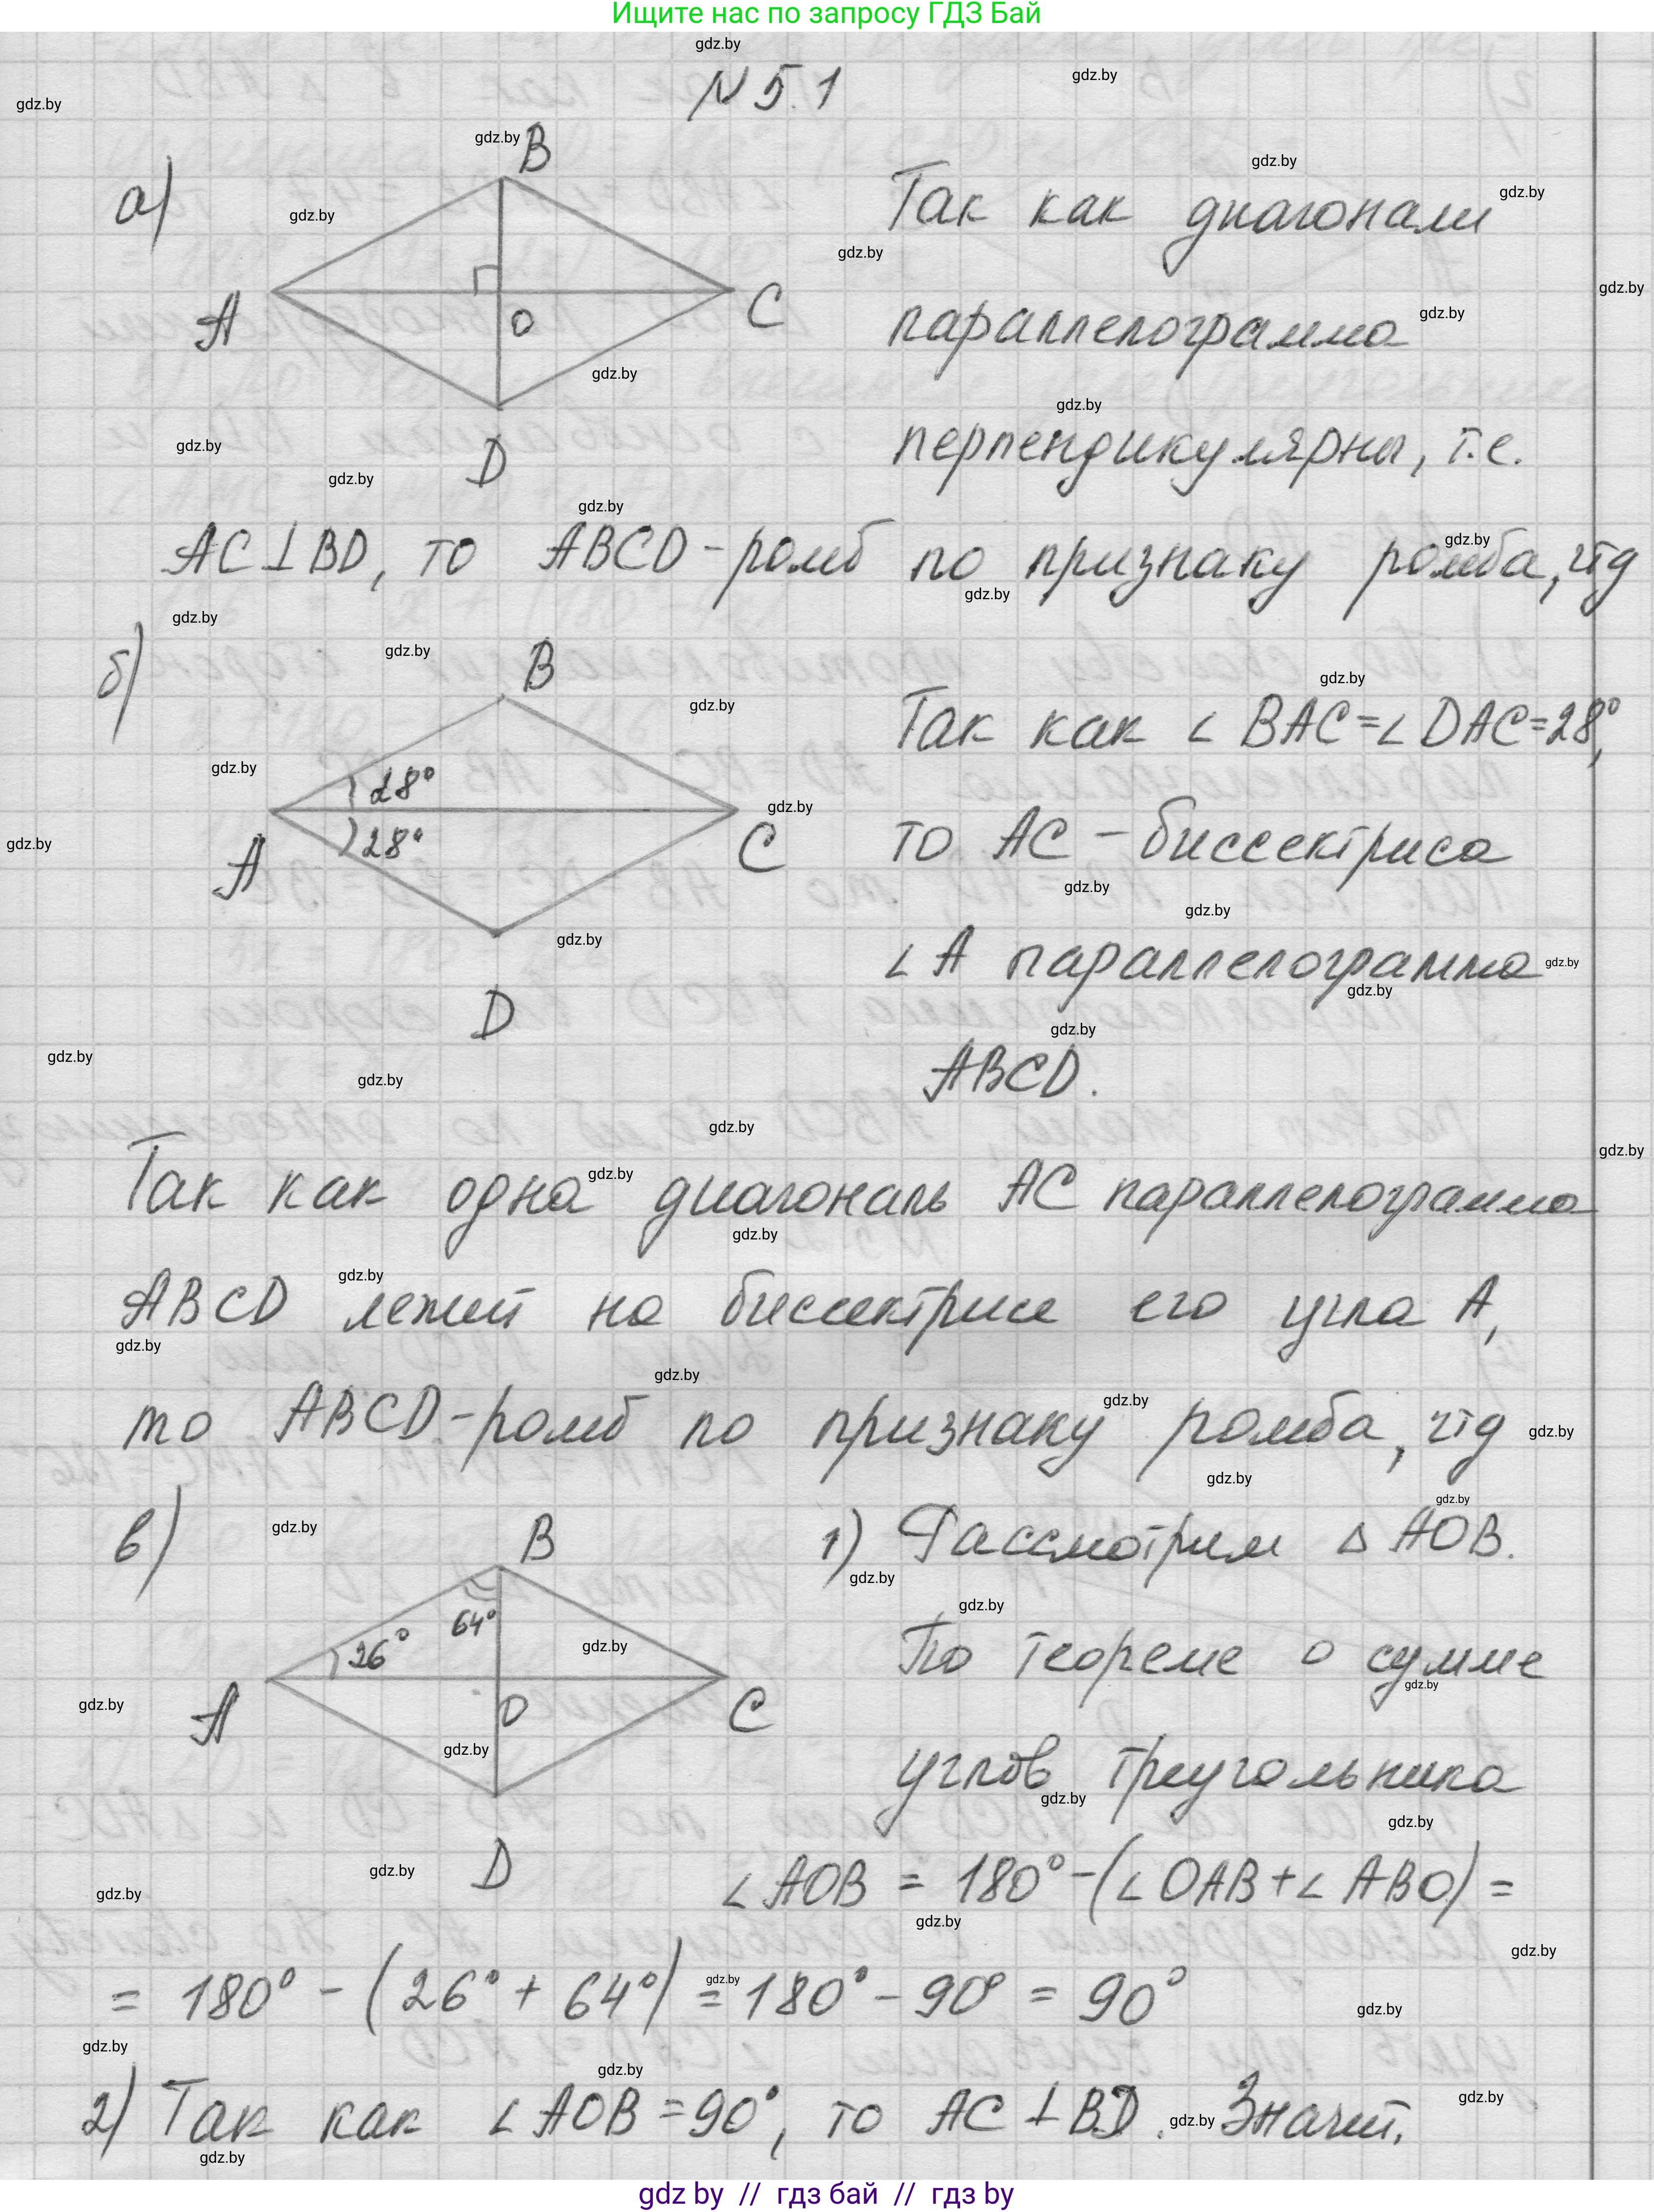 Ищите нас по запросу ГДЗ Бай
N 5.1
а)
B
A
O
C
D
Так как диагонали
параллелограмма
перпендикулярны, т.е.
AC⊥BD, то ABCD-ромб по признаку ромба, чтд
б)
B
28°
28°
A
C
D
Так как ∠ BAC=∠ DAC=28°,
то AC - биссектриса
∠A параллелограмма
ABCD.
Так как одна диагональ AC параллелограмма
ABCD лежит на биссектрисе его угла A,
то ABCD-ромб по признаку ромба, чтд
в)
B
64°
26°
A
O
C
D
1) Рассмотрим △ AOB.
По теореме о сумме
углов треугольника
∠AOB = 180°-(∠OAB+∠ABO) =
= 180° - (26° + 64°) = 180° - 90° = 90°
2) Так как ∠AOB=90°, то AC ⊥ BD. Значит,
gdz by // гдз бай // гдз by